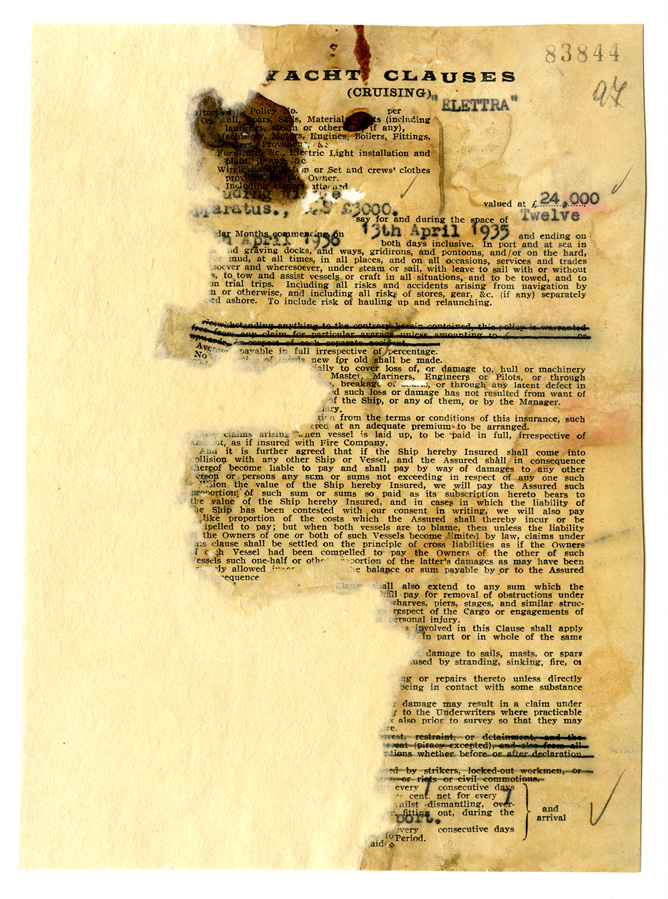 83844
YACHT CLAUSES
(CRUISING)
"ELETTRA"
97
Policy No. per
Hull, Spars, Sails, Materials, (including
launches, steam or otherwise, if any),
Machinery, Motors, Engines, Boilers, Fittings,
&c
Furnitures &c., Electric Light installation and
plant, &c
Wireless or Set and crews' clothes
provided Owner.
Including attached
valued at £ 24,000
paratus., £3000.
say for and during the space of Twelve
dar Months commencing on 13th April 1935 and ending on
April 1936 both days inclusive. In port and at sea in
nd graving docks, and ways, gridirons, and pontoons, and/or on the hard,
or mud, at all times, in all places, and on all occasions, services and trades
soever and wheresoever, under steam or sail, with leave to sail with or without
s, to tow and assist vessels or craft in all situations, and to be towed, and to
on trial trips. Including all risks and accidents arising from navigation by
m or otherwise, and including all risks of stores, gear, &c. (if any) separately
ed ashore. To include risk of hauling up and relaunching.
withstanding anything to the contrary herein contained, this policy is warranted
free from any claim for particular average unless amounting to or
upwards, in respect of each separate accident
Average payable in full irrespective of percentage.
No new for old shall be made.
ially to cover loss of, or damage to, hull or machinery
Master, Mariners, Engineers or Pilots, or through
, breakage of or through any latent defect in
d such loss or damage has not resulted from want of
of the Ship, or any of them, or by the Manager.
ury.
tion from the terms or conditions of this insurance, such
ered at an adequate premium to be arranged.
claims arising when vessel is laid up, to be paid in full, irrespective of
as if insured with Fire Company.
And it is further agreed that if the Ship hereby Insured shall come into
ollision with any other Ship or Vessel, and the Assured shall in consequence
thereof become liable to pay and shall pay by way of damages to any other
person or persons any sum or sums not exceeding in respect of any one such
lision the value of the Ship hereby Insured, we will pay the Assured such
proportion of such sum or sums so paid as its subscription hereto bears to
the value of the Ship hereby Insured, and in cases in which the liability of
he Ship has been contested with our consent in writing, we will also pay
like proportion of the costs which the Assured shall thereby incur or be
mpelled to pay; but when both vessels are to blame, then unless the liability
the Owners of one or both of such Vessels become limited by law, claims under
his clause shall be settled on the principle of cross liabilities as if the Owners
f each Vessel had been compelled to pay the Owners of the other of such
essels such one-half or other proportion of the latter's damages as may have been
ly allowed the balance or sum payable by or to the Assured
sequence
Clause shall also extend to any sum which the
shall pay for removal of obstructions under
wharves, piers, stages, and similar struc-
respect of the Cargo or engagements of
personal injury.
s involved in this Clause shall apply
in part or in whole of the same
damage to sails, masts, or spars
used by stranding, sinking, fire, or
ng or repairs thereto unless directly
being in contact with some substance
damage may result in a claim under
to the Underwriters where practicable
also prior to survey so that they may
re.
rest, restraint, or detainment, and the
eat (piracy excepted), and also from all
tions whether before or after declaration
ed by strikers, locked-out workmen, or
or riots or civil commotions.
every 7 consecutive days
per cent. net for every 7
hilst dismantling, over-
fitting out, during the and
port. arrival
every consecutive days
Period.